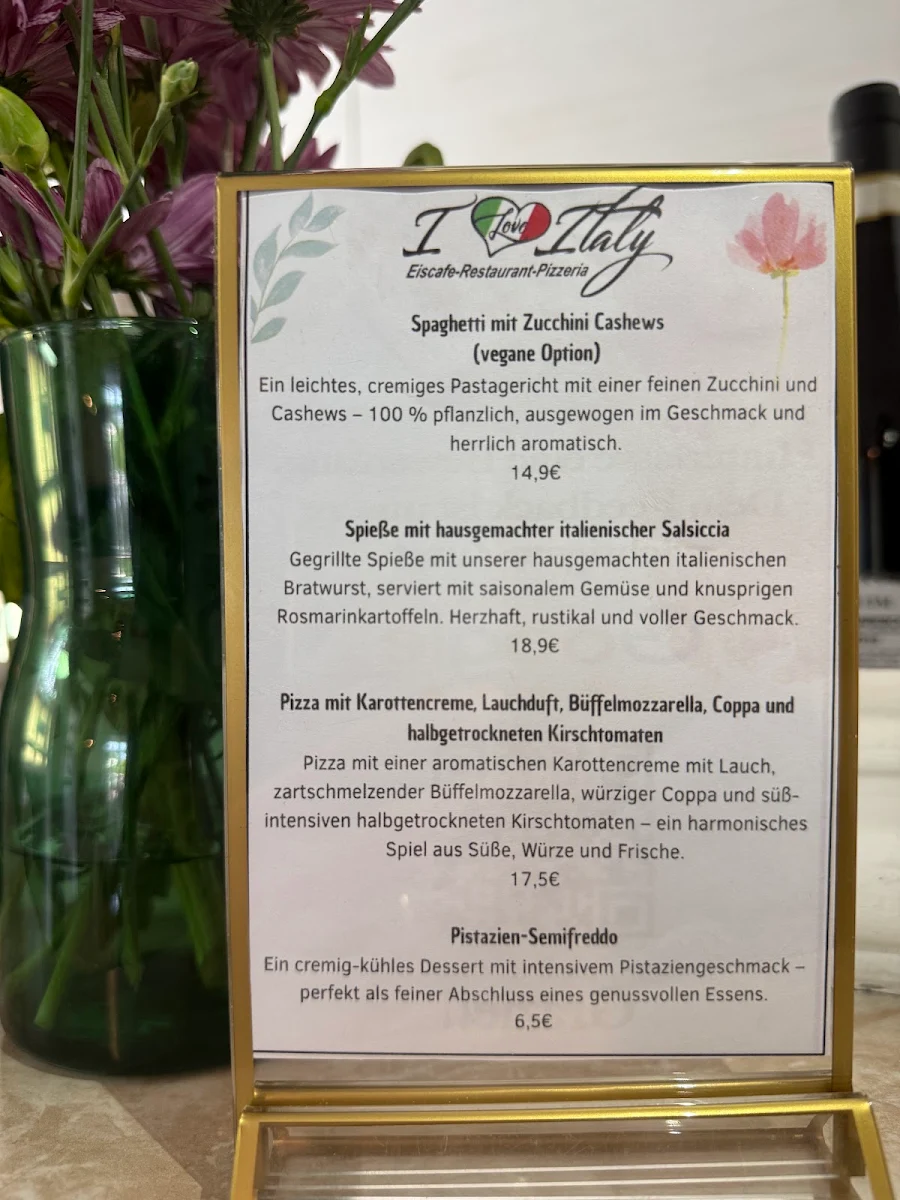 I Love Italy
Eiscafe-Restaurant-Pizzeria
Spaghetti mit Zucchini Cashews
(vegane Option)
Ein leichtes, cremiges Pastagericht mit einer feinen Zucchini und
Cashews – 100 % pflanzlich, ausgewogen im Geschmack und
herrlich aromatisch.
14,9€
Spieße mit hausgemachter italienischer Salsiccia
Gegrillte Spieße mit unserer hausgemachten italienischen
Bratwurst, serviert mit saisonalem Gemüse und knusprigen
Rosmarinkartoffeln. Herzhaft, rustikal und voller Geschmack.
18,9€
Pizza mit Karottencreme, Lauchduft, Büffelmozzarella, Coppa und
halbgetrockneten Kirschtomaten
Pizza mit einer aromatischen Karottencreme mit Lauch,
zartschmelzender Büffelmozzarella, würziger Coppa und süß-
intensiven halbgetrockneten Kirschtomaten – ein harmonisches
Spiel aus Süße, Würze und Frische.
17,5€
Pistazien-Semifreddo
Ein cremig-kühles Dessert mit intensivem Pistaziengeschmack –
perfekt als feiner Abschluss eines genussvollen Essens.
6,5€